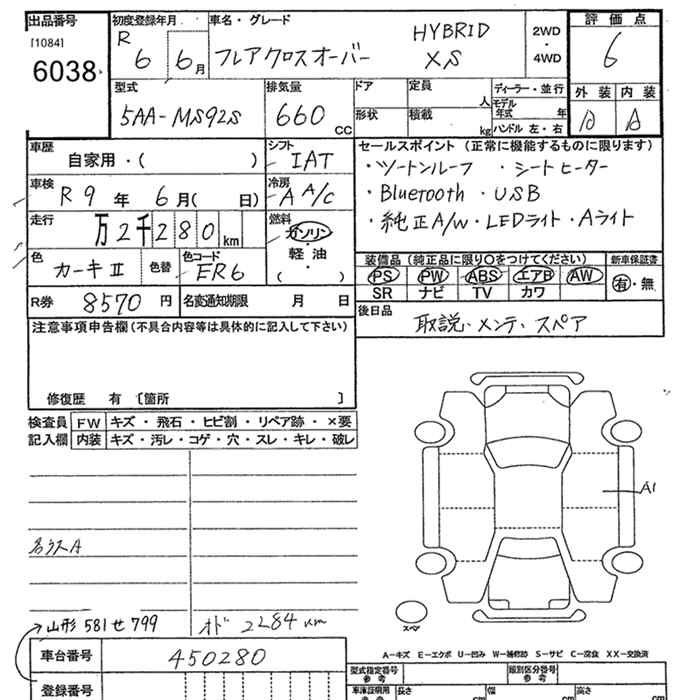 出品番号 [1084] 6038
初度登録年月 R 6 6月
車名・グレード フレアクロスオーバー HYBRID XS
2WD・4WD
評価点 6
外装 内装 A
型式 5AA-MS92S
排気量 660 CC
ドア 形状
定員 人 積載 kg
ディーラー・並行 モデル年式 年 ハンドル 左・右
車歴 自家用・( )
シフト IAT
車検 R 9年 6月( 日)
冷房 A A/C
走行 万2千280km
燃料 ガソリン・軽油・( )
色 カーキⅡ 色替 色コード ER6
R券 8570円 名変通知期限 月 日
セールスポイント (正常に機能するものに限ります)
・ツートンルーフ ・シートヒーター
・Bluetooth ・USB
・純正A/w・LEDライト・Aライト
装備品 (純正品に限り○をつけてください) 新車保証書
PS PW ABS エアB AW 有・無
SR ナビ TV カワ
後日品 取説・メンテ・スペア
注意事項申告欄(不具合内容等は具体的に記入して下さい)
修復歴 有 〔箇所 〕
検査員 FW キズ・飛石・ヒビ割・リペア跡・×要
記入欄 内装 キズ・汚レ・コゲ・穴・スレ・キレ・破レ
A1
→山形 581せ799 オド 2284 km
スペア
A-キズ E-エクボ U-凹み W-補修跡 S-サビ C-腐食 XX-交換済
車台番号 450280
型式指定番号 参考 類別区分番号 参考
登録番号
車庫証明用 参考 長さ cm 幅 cm 高さ cm